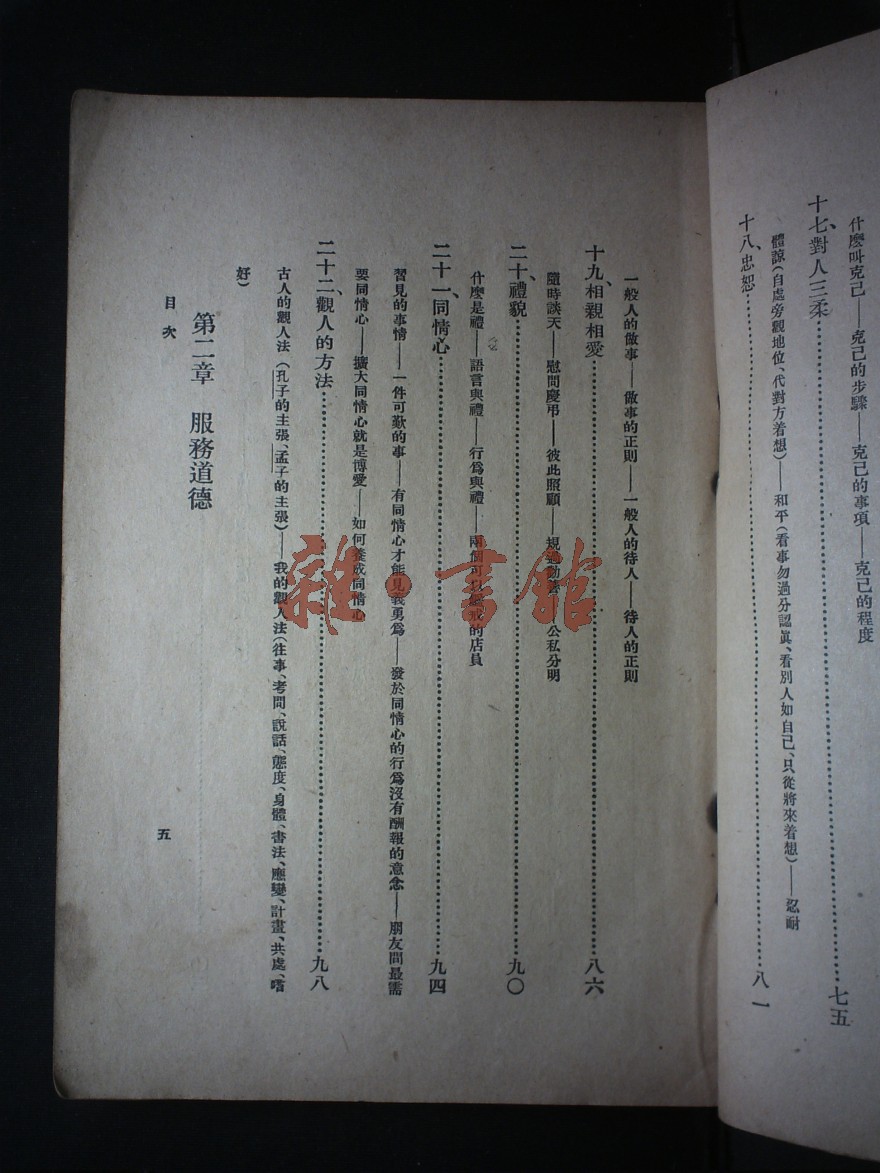 什麼叫克己——克己的步驟——克己的事項——克己的程度
十七、對人三柔……七五
體諒(自處旁觀地位、代對方着想)——和平(看事勿過分認眞、看別人如自己、只從將來着想)——忍耐
十八、忠恕……八一
一般人的做事——做事的正則——一般人的待人——待人的正則
十九、相親相愛……八六
隨時談天——慰問慶弔——彼此照顧——規過勸善——公私分明
二十、禮貌……九〇
什麼是禮——語言與禮——行爲與禮——兩個可以鑑戒的店員
二十一、同情心……九四
習見的事情——一件可歎的事——有同情心才能見義勇爲——發於同情心的行爲沒有酬報的意念——朋友間最需
要同情心——擴大同情心就是博愛——如何養成同情心
二十二、觀人的方法……九八
古人的觀人法(孔子的主張、孟子的主張)——我的觀人法(往事、考問、說話、態度、身體、書法、應變、計畫、共處、嗜
好)
第二章 服務道德
目次
五
雜·書館